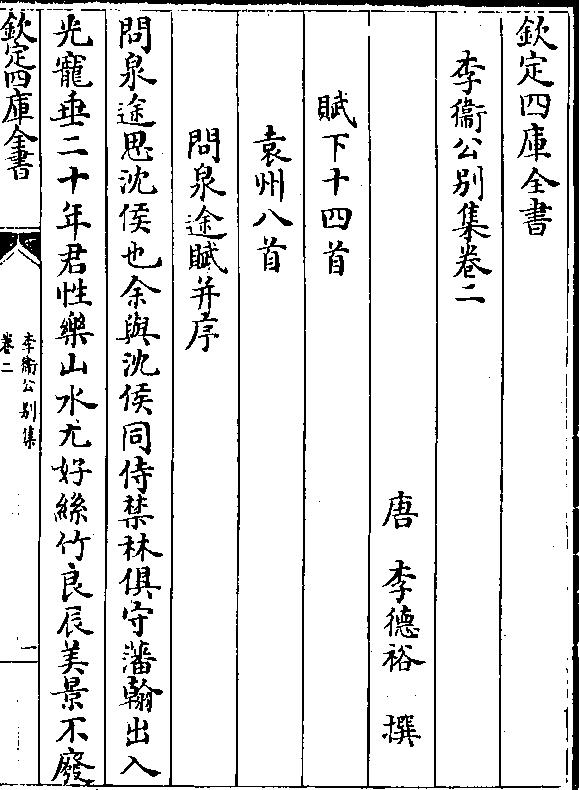 欽定四庫全書
李衞公別集卷二
唐 李德裕 撰
賦下十四首
袁州八首
問泉途賦并序
問泉途思沈侯也余與沈侯同侍禁林俱守藩翰出入
光寵垂二十年君性樂山水尤好絲竹良辰美景不廢
欽定四庫全書
李衞公別集
卷二
一